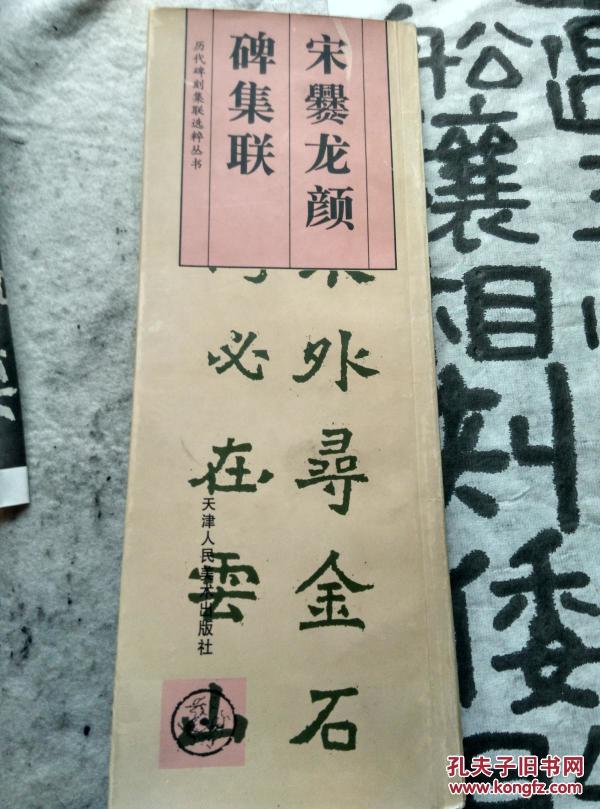 宋爨龙颜
碑集联
历代碑刻集联选粹丛书
外尋金石
必在雲山
天津人民美术出版社
相
倭
孔夫子旧书网